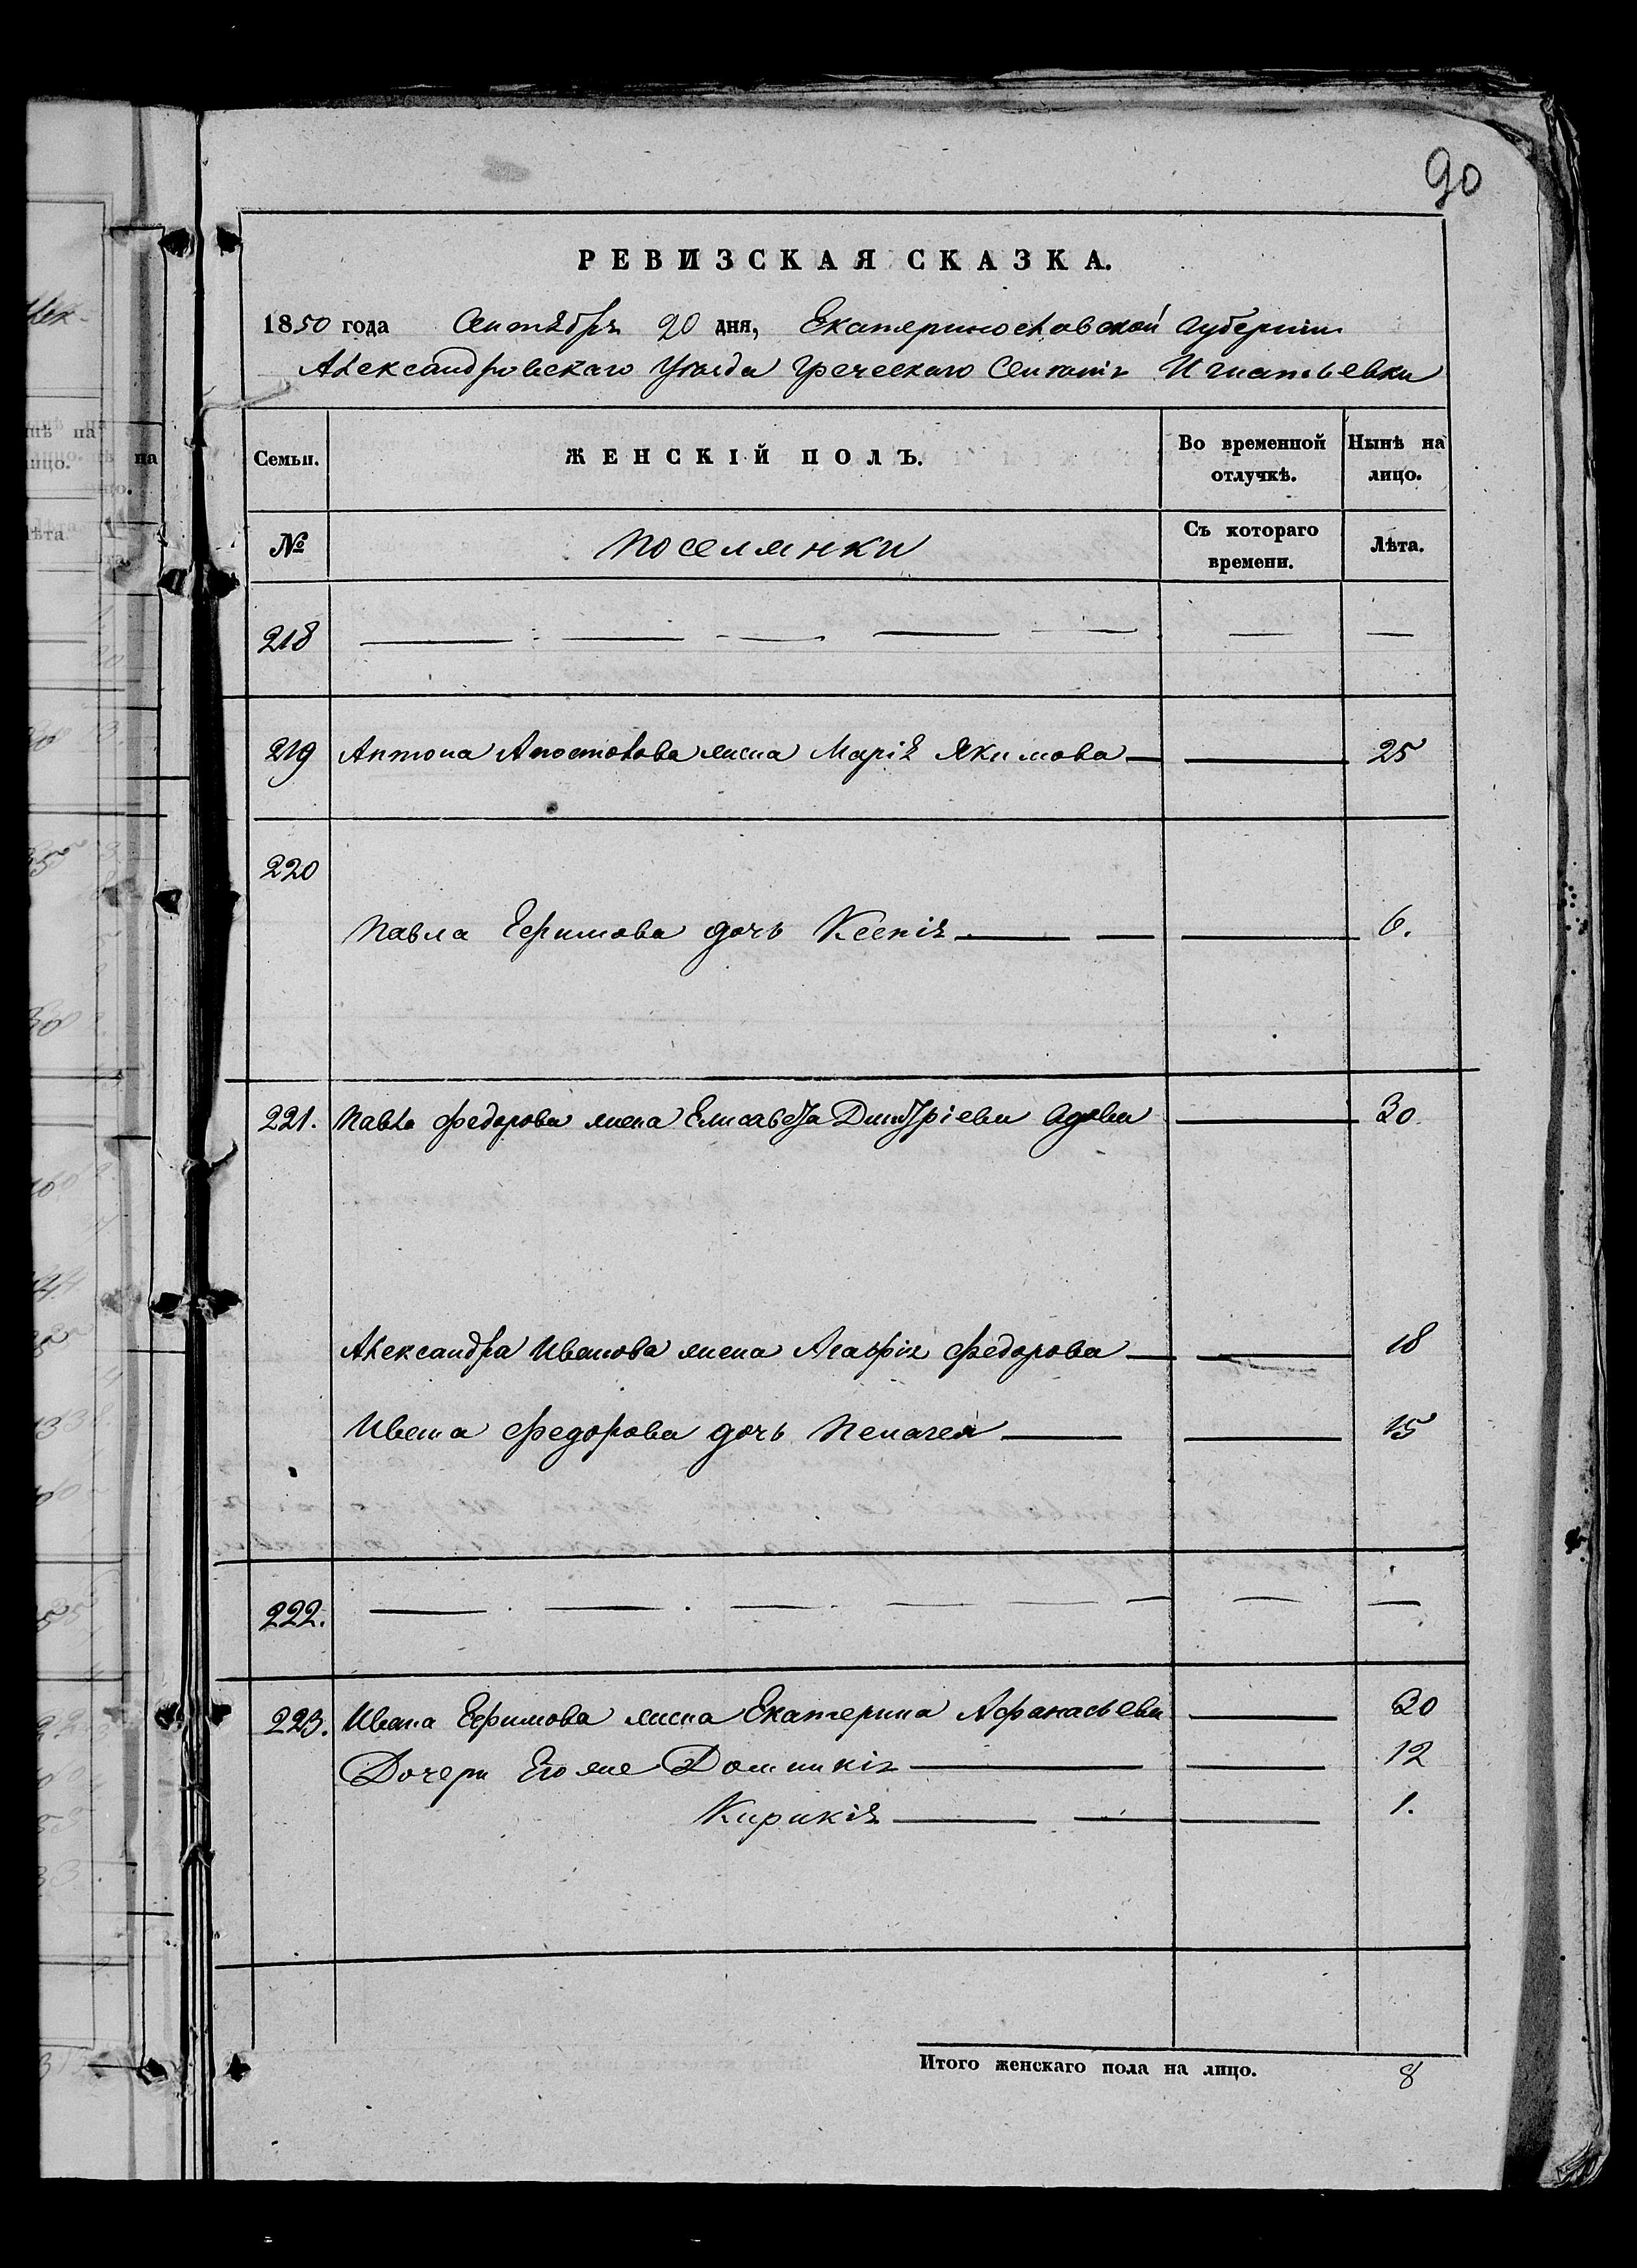 90
РЕВИЗСКАЯ СКАЗКА.
1850 года Сентября 20 дня, Екатеринославской Губернии
Александровскаго Уѣзда Греческаго Селенія Игнатьевки
Семьи. ЖЕНСКІЙ ПОЛЪ. Во временной отлучкѣ. Нынѣ на лицо.
№ Поселянки Съ котораго времени. Лѣта.
218 — — — — — — —
219 Антона Апостолова жена Марія Якимова — — 25
220
Павла Ефимова дочь Ксенія — — — 6.
221. Павла Федорова жена Елисавета Димитріева вдова — 30.
Александра Иванова жена Агафія Федорова — — 18
Ивана Федорова дочь Пелагея — — 15
222. — — — — — — —
223. Ивана Ефимова жена Екатерина Афанасьева — 30
Дочери Его же Домникія — — 12
Кирикія — — — 1.
Итого женскаго пола на лицо. 8